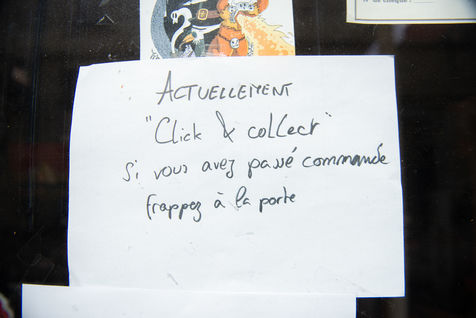 N° de chèque :
ACTUELLEMENT
"Click & collect"
si vous avez passé commande
frappez à la porte